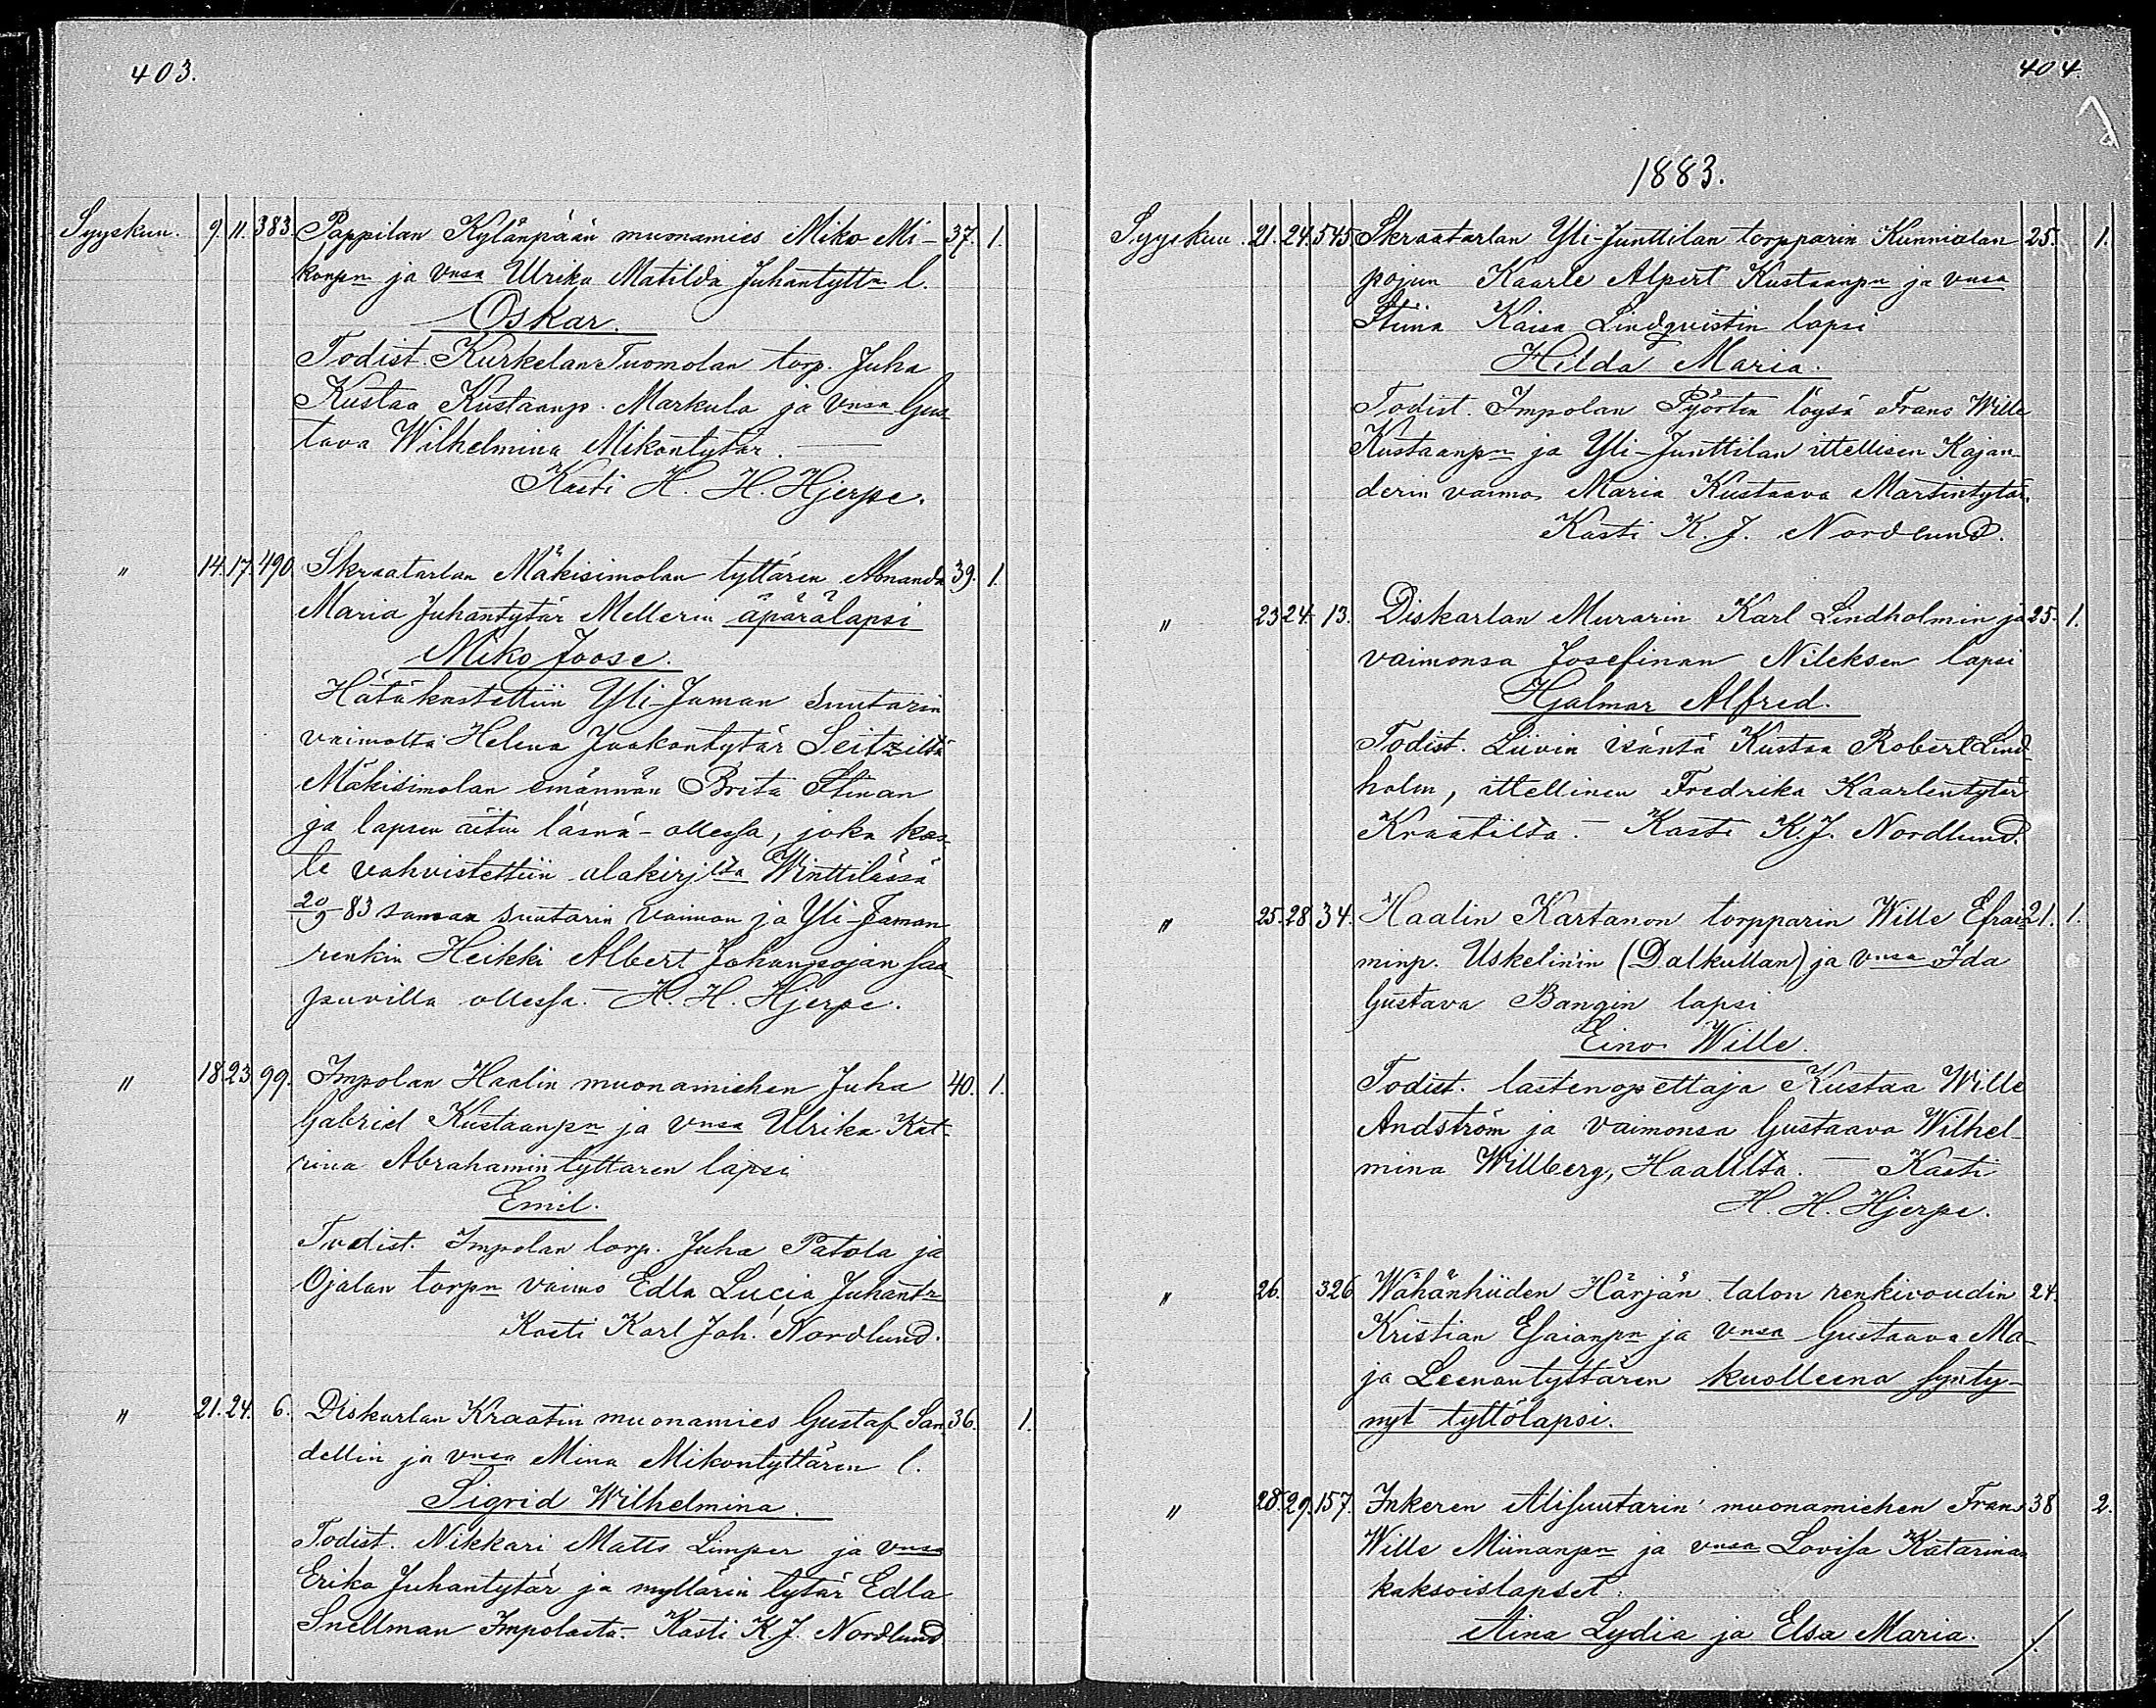 403.
Syyskuu. 9. 11. 383. Pappilan Kylänpään muonamies Miko Mi- 37. 1.
konpn ja vnsa Ulrika Matilda Juhantyttn l.
Oskar.
Todist. Kurkelan Tuomolan torp. Juha
Kustaa Kustaanp. Markula ja vnsa Gus-
tava Wilhelmina Mikontytär.
Kasti H. H. Hjerpe.
" 14. 17. 490. Skraatarlan Mäkisimolan tyttären Amanda 39. 1.
Maria Juhantytär Mellerin äpärälapsi
Miko Joose.
Hätäkastettiin Yli-Jaman Suutarin
vaimolta Helena Jaakontytär Seitziltä
Mäkisimolan emännän Brita Stinan
ja lapsen äitin läsnä-ollessa, joka kas-
te vahvistettiin alakirjlta Winttilässä
20/9 83 saman suutarin vaimon ja Yli-Jaman
renkin Heikki Albert Johanpojan saa-
puvilla ollessa. - H. H. Hjerpe.
" 18. 23. 99. Impolan Haalin muonamiehen Juha 40. 1.
Gabriel Kustaanpn ja vnsa Ulrika Kat-
rina Abrahamintyttaren lapsi
Emil.
Todist. Impolan torp. Juha Patola ja
Ojalan torpn vaimo Edla Lucia Juhantr
Kasti Karl Joh. Nordlund.
" 21. 24. 6. Diskarlan Kraatin muonamies Gustaf San- 36. 1.
dellin ja vnsa Mina Mikontyttären l.
Sigrid Wilhelmina.
Todist. Nikkari Matts Limper ja vnsa
Erika Juhantytär ja myllärin tytär Edla
Snellman Impolasta. - Kasti K. J. Nordlund
404.
1883.
Syyskuu. 21. 24. 545. Skraatarlan Yli-Junttilan torpparin Kunnialan 25. 1.
pojan Kaarle Alpert Kustaanpn ja vnsa
Stiina Kaisa Lindqvistin lapsi
Hilda Maria.
Todist. Impolan Pyörtin löysä Frans Wille
Kustaanpn ja Yli-Junttilan ittellisen Kajan-
derin vaimo Maria Kustaava Martintytär.
Kasti K. J. Nordlund.
" 23. 24. 13. Diskarlan Murarin Karl Lindholmin ja 25. 1.
vaimonsa Josefinan Nileksen lapsi
Hjalmar Alfred.
Todist. Liivin isäntä Kustaa Robert Lind-
holm, ittellinen Fredrika Kaarlentytär
Kraatilta. - Kasti K. J. Nordlund.
" 25. 28. 34. Haalin Kartanon torpparin Wille Efrai- 21. 1.
minp. Uskelin'in (Dalkullan) ja vnsa Ida
Gustava Bangin lapsi
Eino Wille.
Todist. lastenopettaja Kustaa Wille
Andström ja vaimonsa Gustaava Wilhel-
mina Willberg, Haalilta. - Kasti
H. H. Hjerpe.
" 26. 326. Wähänhiiden Härjän talon renkivoudin 24.
Kristian Esaianpn ja vnsa Gustaava Ma-
ja Leenantyttären kuolleena synty-
nyt tyttölapsi.
" 28. 29. 157. Inkeren Alisuutarin muonamiehen Frans 38 2.
Wille Miinanpn ja vnsa Lovisa Katarinan
kaksoislapset.
Aina Lydia ja Elsa Maria.